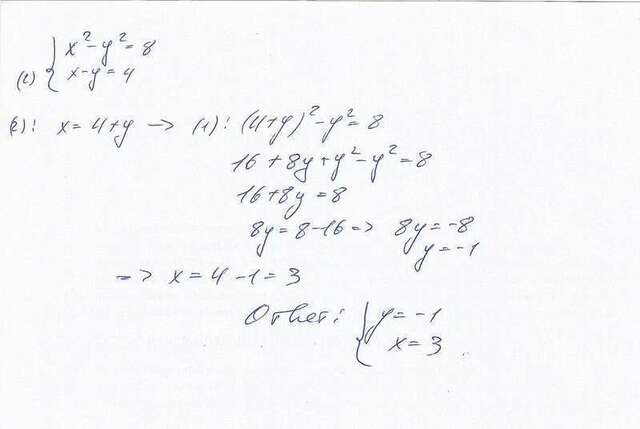 x²-y²=8
(2) x-y=4
(2): x=4+y → (1): (4+y)²-y²=8
16+8y+y²-y²=8
16+8y=8
8y=8-16=> 8y=-8
y=-1
=> x=4-1=3
Ответ: y=-1
x=3